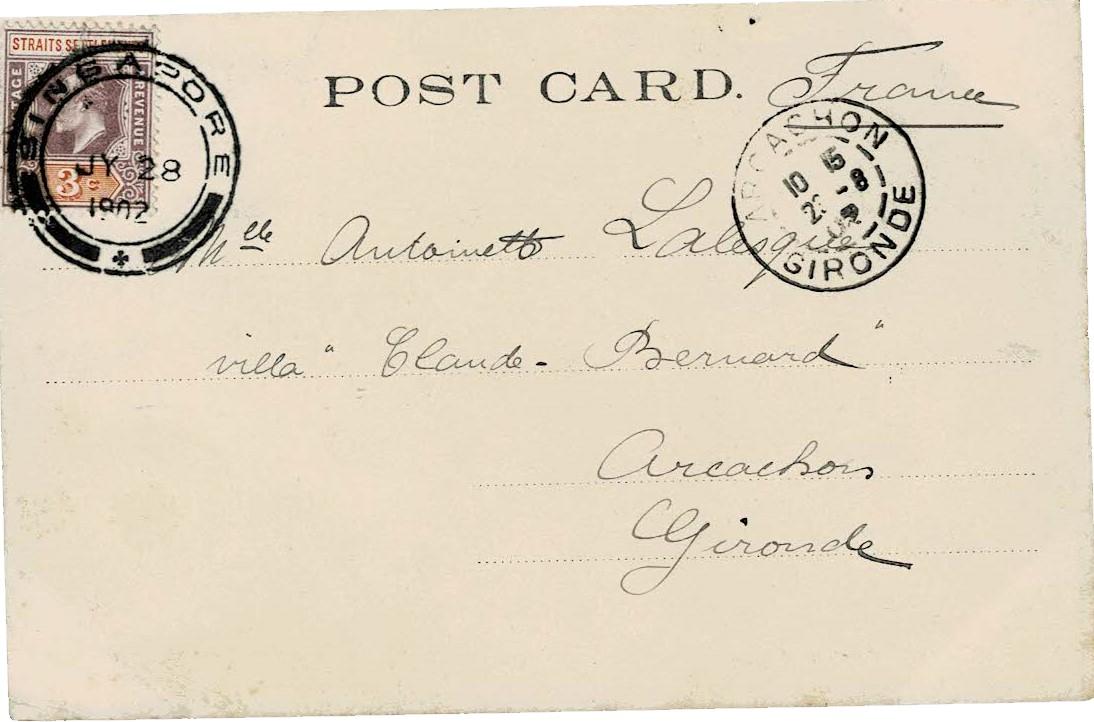 STRAITS SETTLEMENTS
POSTAGE REVENUE
3c
SINGAPORE
JY 28
1902
POST CARD.
France
ARCACHON
10 15
8
GIRONDE
Mlle Antoinette Lalesque
villa "Claude-Bernard"
Arcachon
Gironde